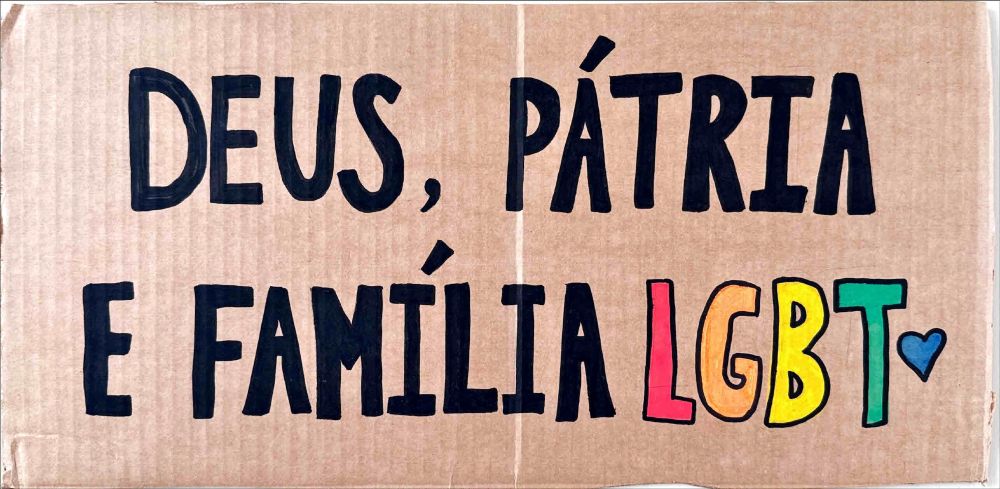 DEUS, PÁTRIA
E FAMÍLIA LGBT